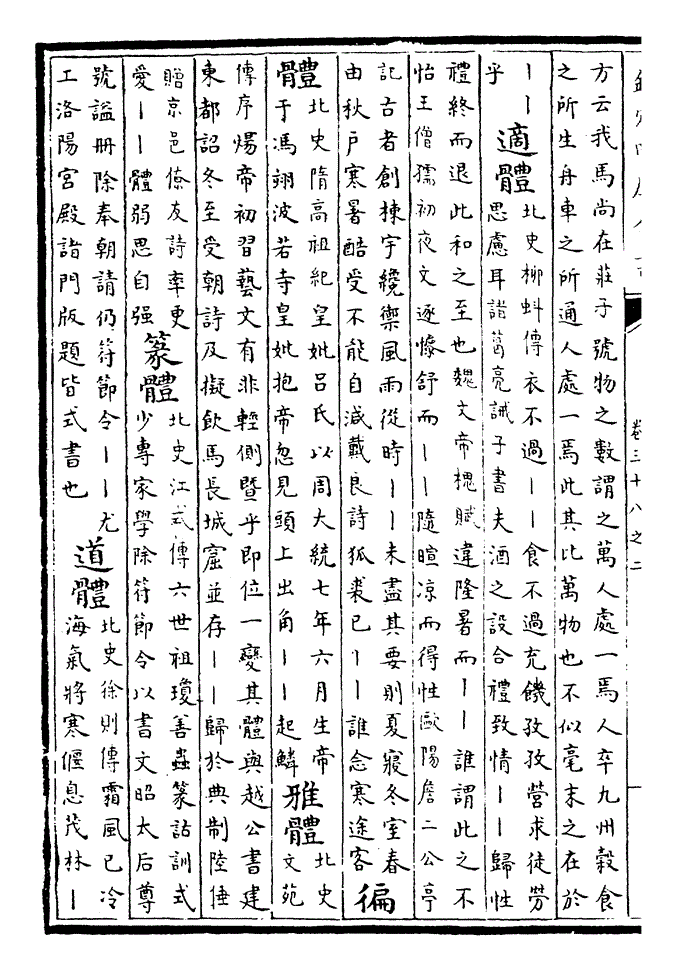 卷三十八之二
方云我馬尚在莊子號物之數謂之萬人處一焉人卒九州穀食
之所生舟車之所通人處一焉此其比萬物也不似毫末之在於
丨丨
乎
適體
北史柳蚪傳衣不過丨丨食不過充饑孜孜營求徒勞
思慮耳諸葛亮誡子書夫酒之設合禮致情丨丨歸性
禮終而退此和之至也魏文帝槐賦違隆暑而丨丨誰謂此之不
怡王僧孺初夜文逐慘舒而丨丨隨暄涼而得性歐陽詹二公亭
記古者創棟宇纔禦風雨從時丨丨未盡其要則夏寢冬室春
由秋戶寒暑酷受不能自減戴良詩狐裘已丨丨誰念寒途客
徧
體
北史隋高祖紀皇妣呂氏以周大統七年六月生帝
于馮翊波若寺皇妣抱帝忽見頭上出角丨丨起鱗
雅體
北史
文苑
傳序煬帝初習藝文有非輕側暨乎即位一變其體與越公書建
東都詔冬至受朝詩及擬飲馬長城窟並存丨丨歸於典制陸倕
贈京邑僚友詩率更
愛丨丨體弱思自强
篆體
北史江式傳六世祖瓊善蟲篆詁訓式
少專家學除符節令以書文昭太后尊
號諡册除奉朝請仍符節令丨丨尤
工洛陽宮殿諸門版題皆式書也
道體
北史徐則傳霜風已冷
海氣將寒偃息茂林丨